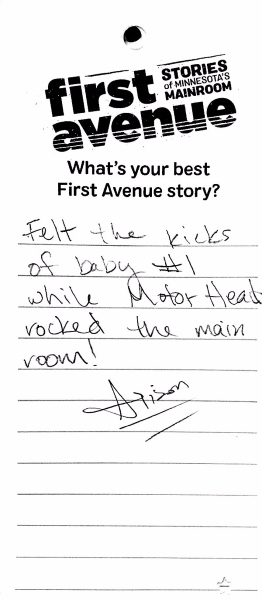 first
avenue
STORIES
of MINNESOTA'S
MAINROOM
What's your best
First Avenue story?
Felt the kicks
of baby #1
while Motor Head
rocked the main
room!